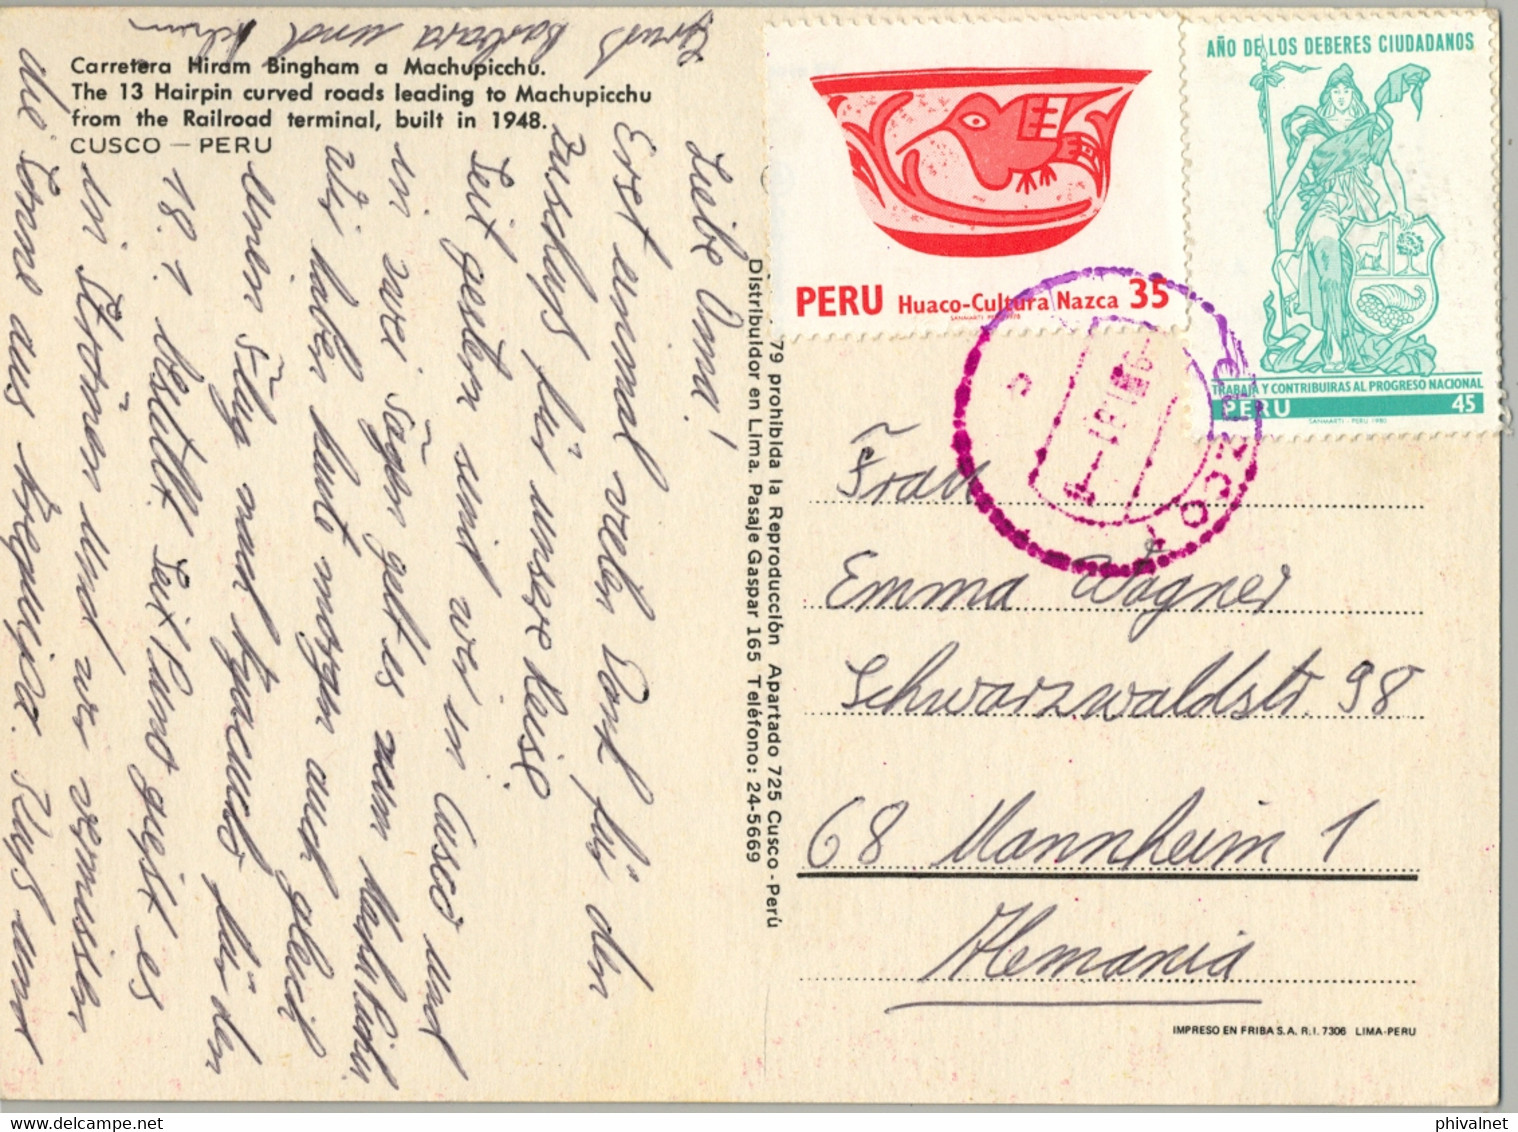 Carretera Hiram Bingham a Machupicchu.
The 13 Hairpin curved roads leading to Machupicchu
from the Railroad terminal, built in 1948.
CUSCO — PERU
Liebe Oma!
Erst einmal vielen Dank für den
Zuschuß für unsere Reise.
Seit gestern sind wir in Cusco und
in zwei Tagen geht es zum Machu Picchu.
Wir haben heute morgen auch gleich
einen Flug nach Ayacucho für den
18.1 bestellt. Seit Puno gießt es
in Strömen und wir vermissen
die Sonne aus Arequipa. Kuß und
Gruß Barbara und
79 prohibida la Reproducción Apartado 725 Cusco - Perú
Distribuidor en Lima. Pasaje Gaspar 165 Teléfono: 24-5669
PERU Huaco-Cultura Nazca 35
AÑO DE LOS DEBERES CIUDADANOS
TRABAJA Y CONTRIBUIRAS AL PROGRESO NACIONAL
PERU 45
SANMARTI - PERU 1980
Frau
Emma Wagner
Schwarzwaldstr. 98
68 Mannheim 1
Alemania
IMPRESO EN FRIBA S.A. R.I. 7306 LIMA-PERU
phivalnet